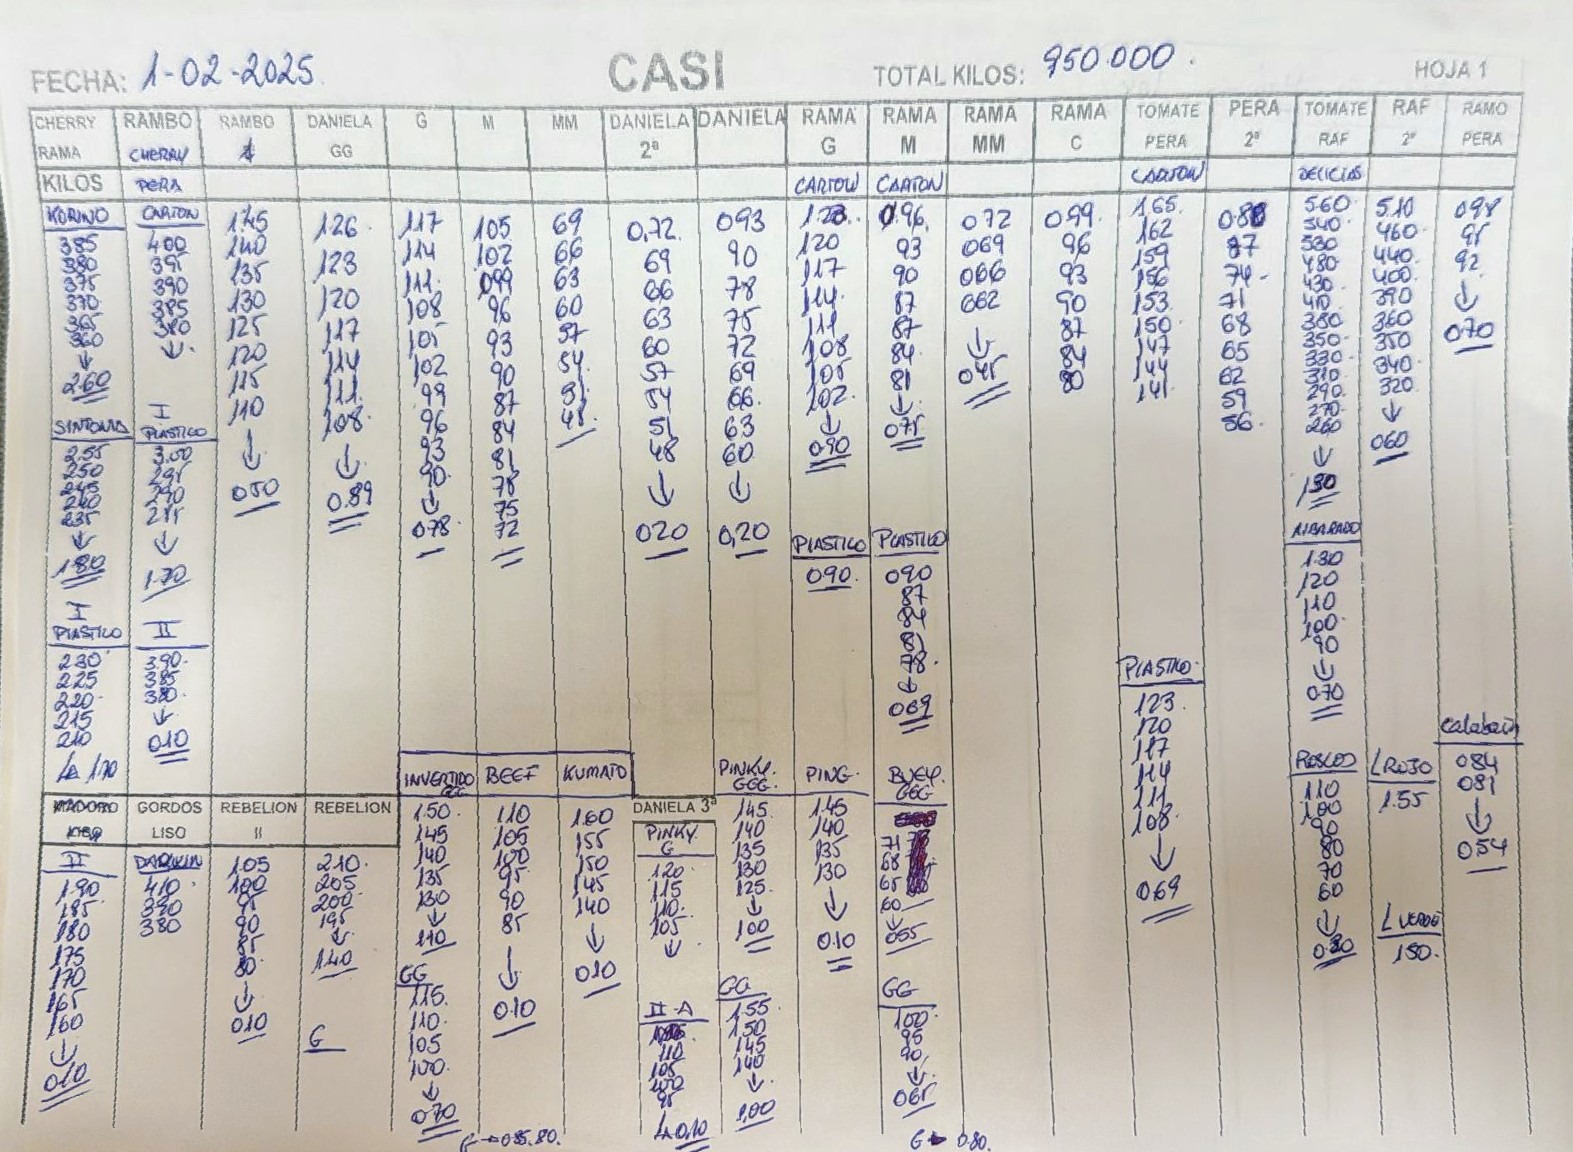 FECHA: 1-02-2025. CASI TOTAL KILOS: 950.000. HOJA 1
CHERRY RAMA
RAMBO CHERRY
RAMBO
DANIELA GG
G
M
MM
DANIELA 2ª
DANIELA
RAMA G
RAMA M
RAMA MM
RAMA C
TOMATE PERA
PERA 2ª
TOMATE RAF
RAF 2ª
RAMO PERA
KILOS
PERA
CARTON
CARTON
CARTON
DELICIAS
KORINO
385
380
375
370
365
360
↓
260
SINTONIA
2.55
250
245
240
235
↓
1.80
I
PLASTICO
230
225
220
215
210
170
II
1.90
185
180
175
170
165
160
↓
010
CARTON
400
395
390
385
380
↓
I
PLASTICO
3.00
295
290
285
↓
1.70
II
3.90
385
380
↓
010
GORDOS LISO
410
390
380
1.45
140
135
130
125
120
115
110
↓
050
REBELION II
1.05
100
95
90
85
80
↓
010
126
123
120
117
114
111
108
↓
0.89
REBELION
210
205
200
195
↓
140
G
117
114
111
108
105
102
99
96
93
90
↓
078
INVERTIDO GG
1.50
145
140
135
130
↓
110
GG
115
110
105
100
↓
070
105
102
099
96
93
90
87
84
81
78
75
72
BEEF
110
105
100
95
90
85
↓
010
69
66
63
60
57
54
51
48
KUMATO
160
155
150
145
140
↓
010
0,72
69
66
63
60
57
54
51
48
↓
020
DANIELA 3ª
PINKY G
120
115
110
105
↓
II-A
110
105
100
95
0,10
093
90
78
75
72
69
66
63
60
↓
0,20
PINKY GGG
145
140
135
130
125
↓
100
GG
1.55
150
145
140
↓
1,00
123
120
117
114
111
108
105
102
↓
090
PLASTICO
090
PING.
1.45
140
135
130
↓
010
0.96
93
90
87
87
84
81
↓
075
PLASTICO
090
87
84
81
78
↓
069
BUEY GGG
71
68
65
60
↓
055
GG
100
95
90
↓
065
072
069
066
062
↓
045
099
96
93
90
87
84
80
165
162
159
156
153
150
147
144
141
PLASTICO
123
120
117
114
111
108
↓
069
77
74
71
68
65
62
59
56
560
540
530
480
430
410
380
350
330
310
290
270
260
↓
130
ALBARADO
1.30
120
110
100
90
↓
070
ROSCO
110
100
90
80
70
60
↓
510
460
440
400
390
360
350
340
320
↓
060
L ROJO
1.55
L VERDE
150
098
95
92
↓
070
Calabacin
084
081
↓
054
G → 085.80.
G 0.80.